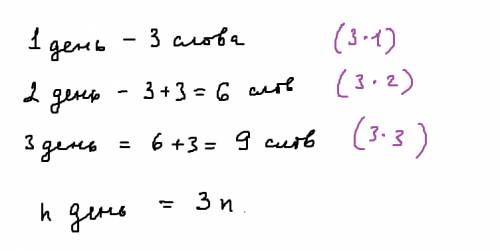 1 день - 3 слова (3·1)
2 день - 3+3=6 слов (3·2)
3 день = 6+3= 9 слов (3·3)
n день = 3n